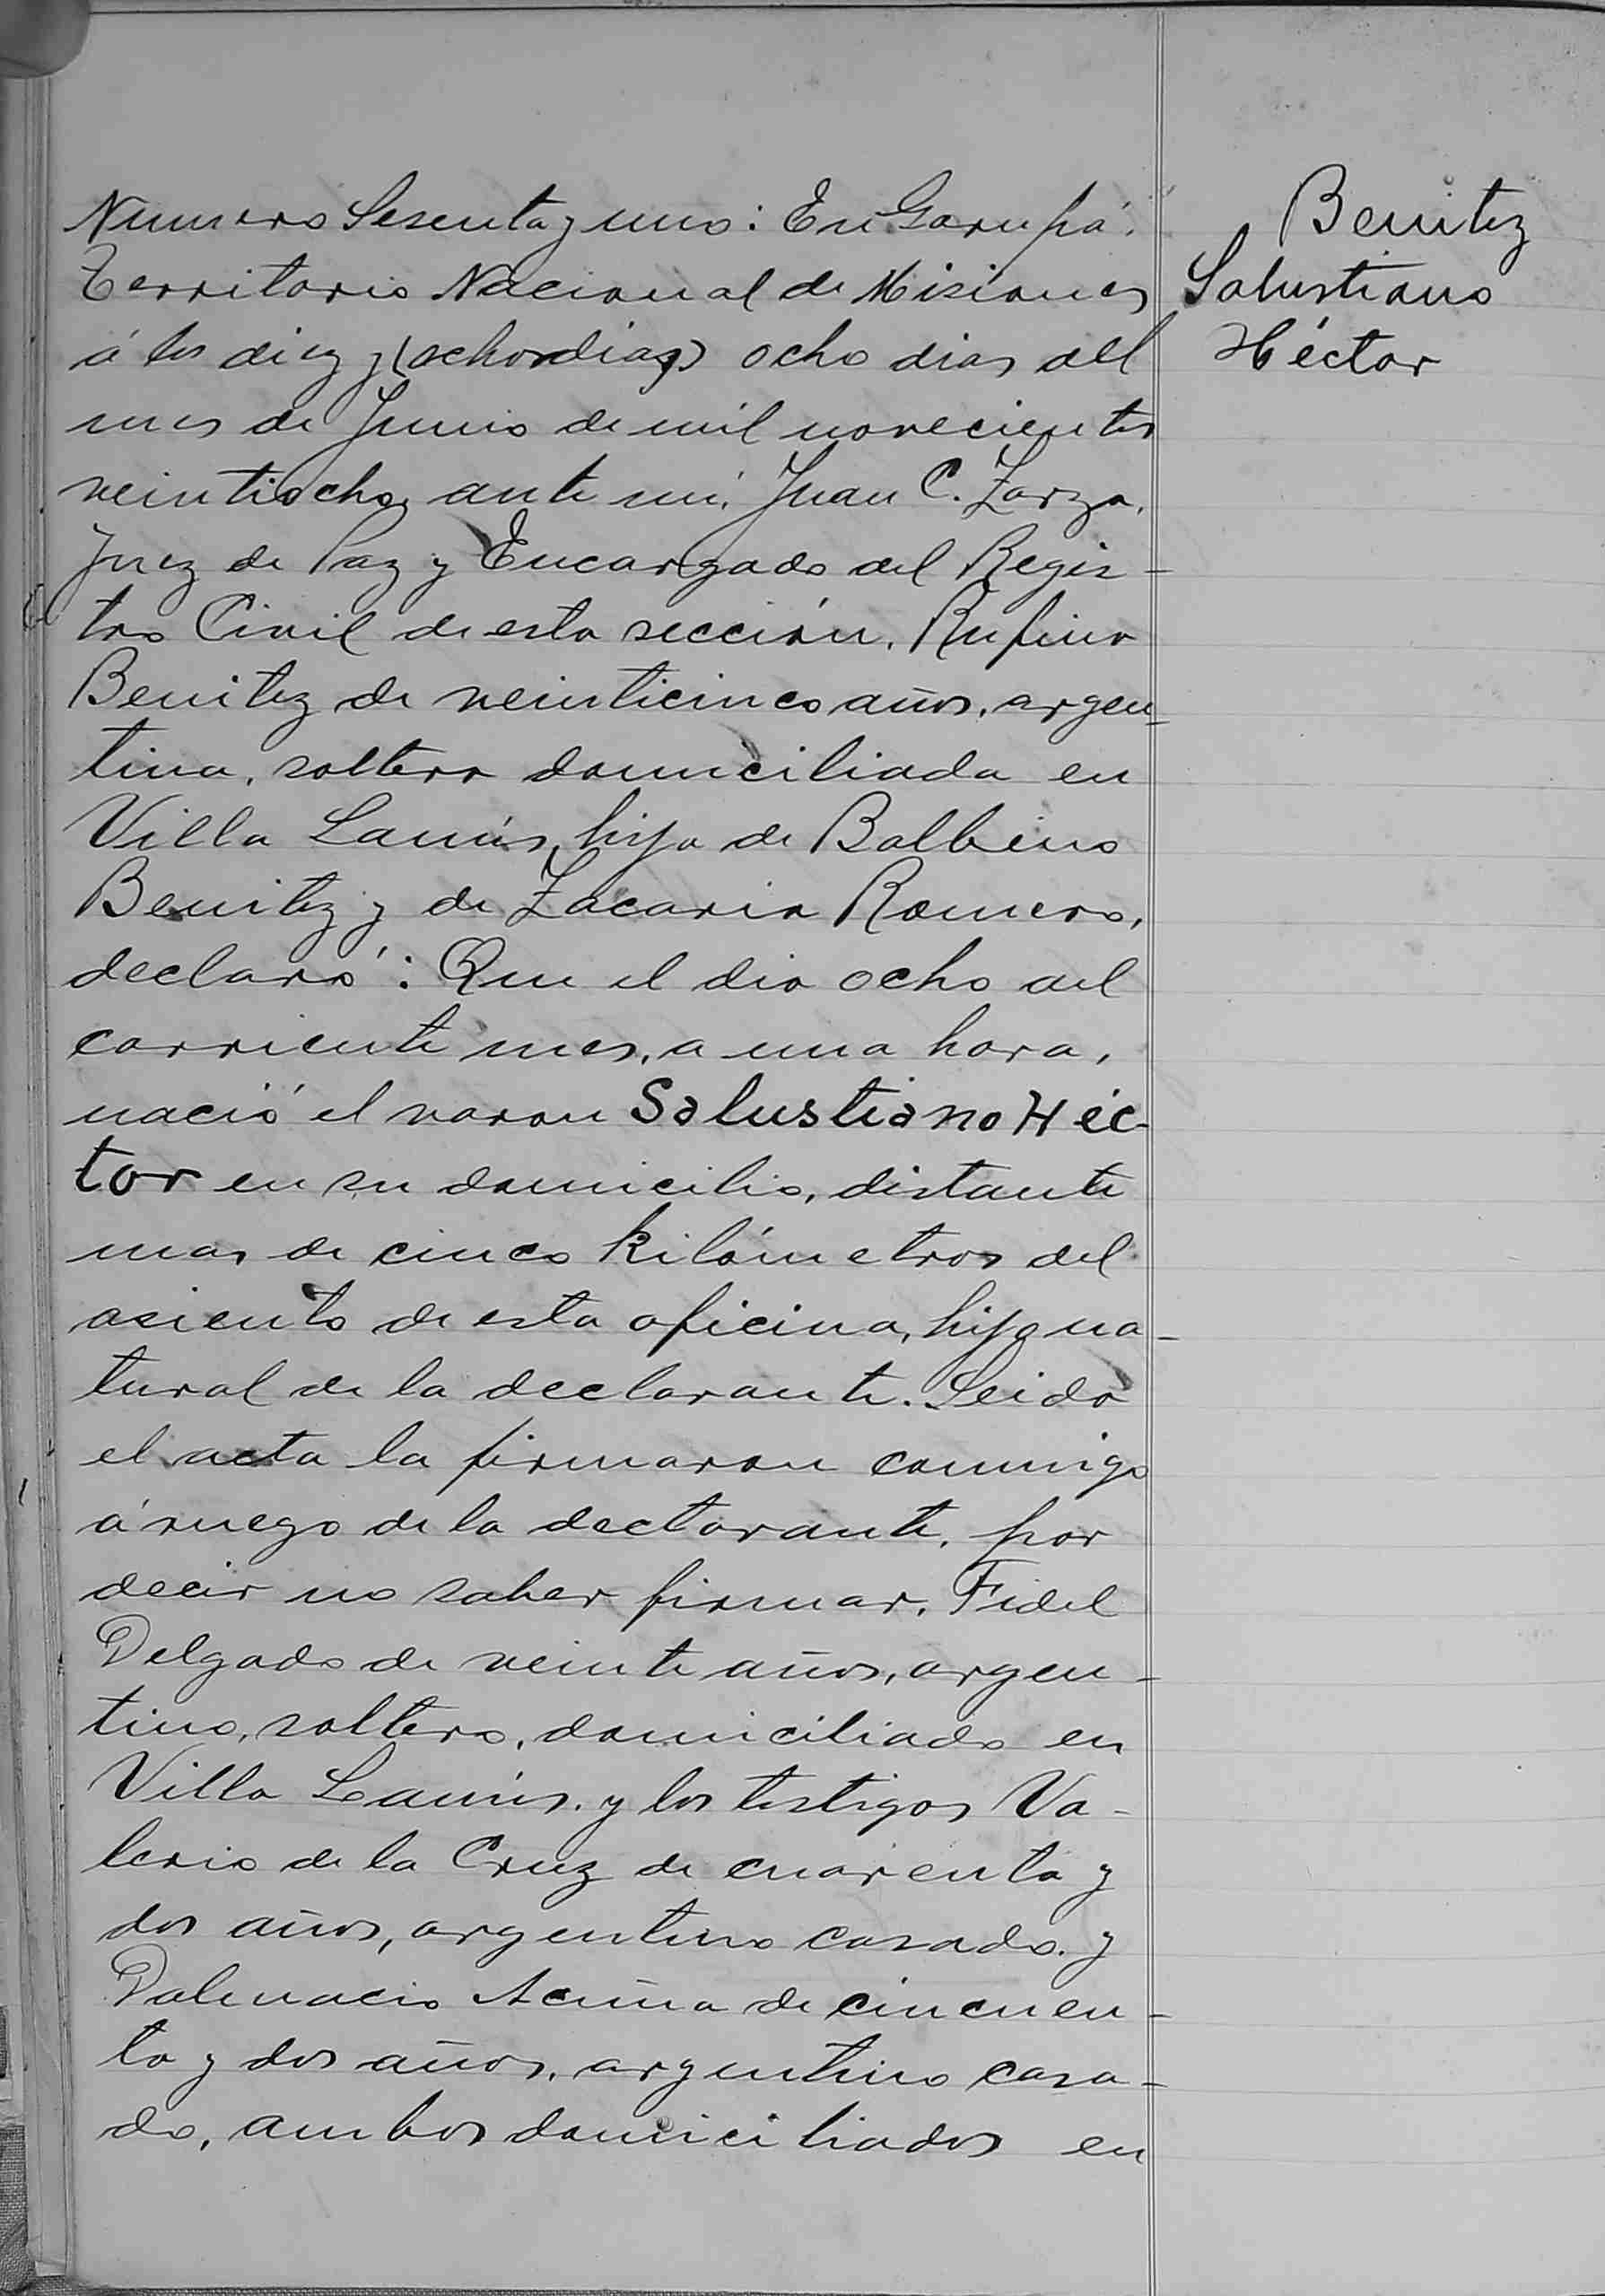 Numero Sesenta y uno: En Garupá.
Territorio Nacional de Misiones
á los diez y (ocho dias) ocho dias del
mes de Junio de mil novecientos
veintiocho, ante mí, Juan C. Zarza,
Juez de Paz y Encargado del Regis-
tro Civil de esta sección, Rufina
Benitez de veinticinco años, argen-
tina, soltera domiciliada en
Villa Lanús, hija de Balbino
Benitez y de Zacaria Romero,
declaró: Que el dia ocho del
corriente mes, a una hora,
nació el varon Salustiano Héc-
tor en su domicilio, distante
mas de cinco kilómetros del
asiento de esta oficina, hijo na-
tural de la declarante. Leida
el acta la firmaron conmigo
á ruego de la declarante, por
decir no saber firmar, Fidel
Delgado de veinte años, argen-
tino, soltero, domiciliado en
Villa Lanús. y los testigos Va-
lerio de la Cruz de cuarenta y
dos años, argentino casado. y
Acuña de cincuen-
ta y dos años, argentino casa-
do, ambos domiciliados en
Benitez
Salustiano
Héctor